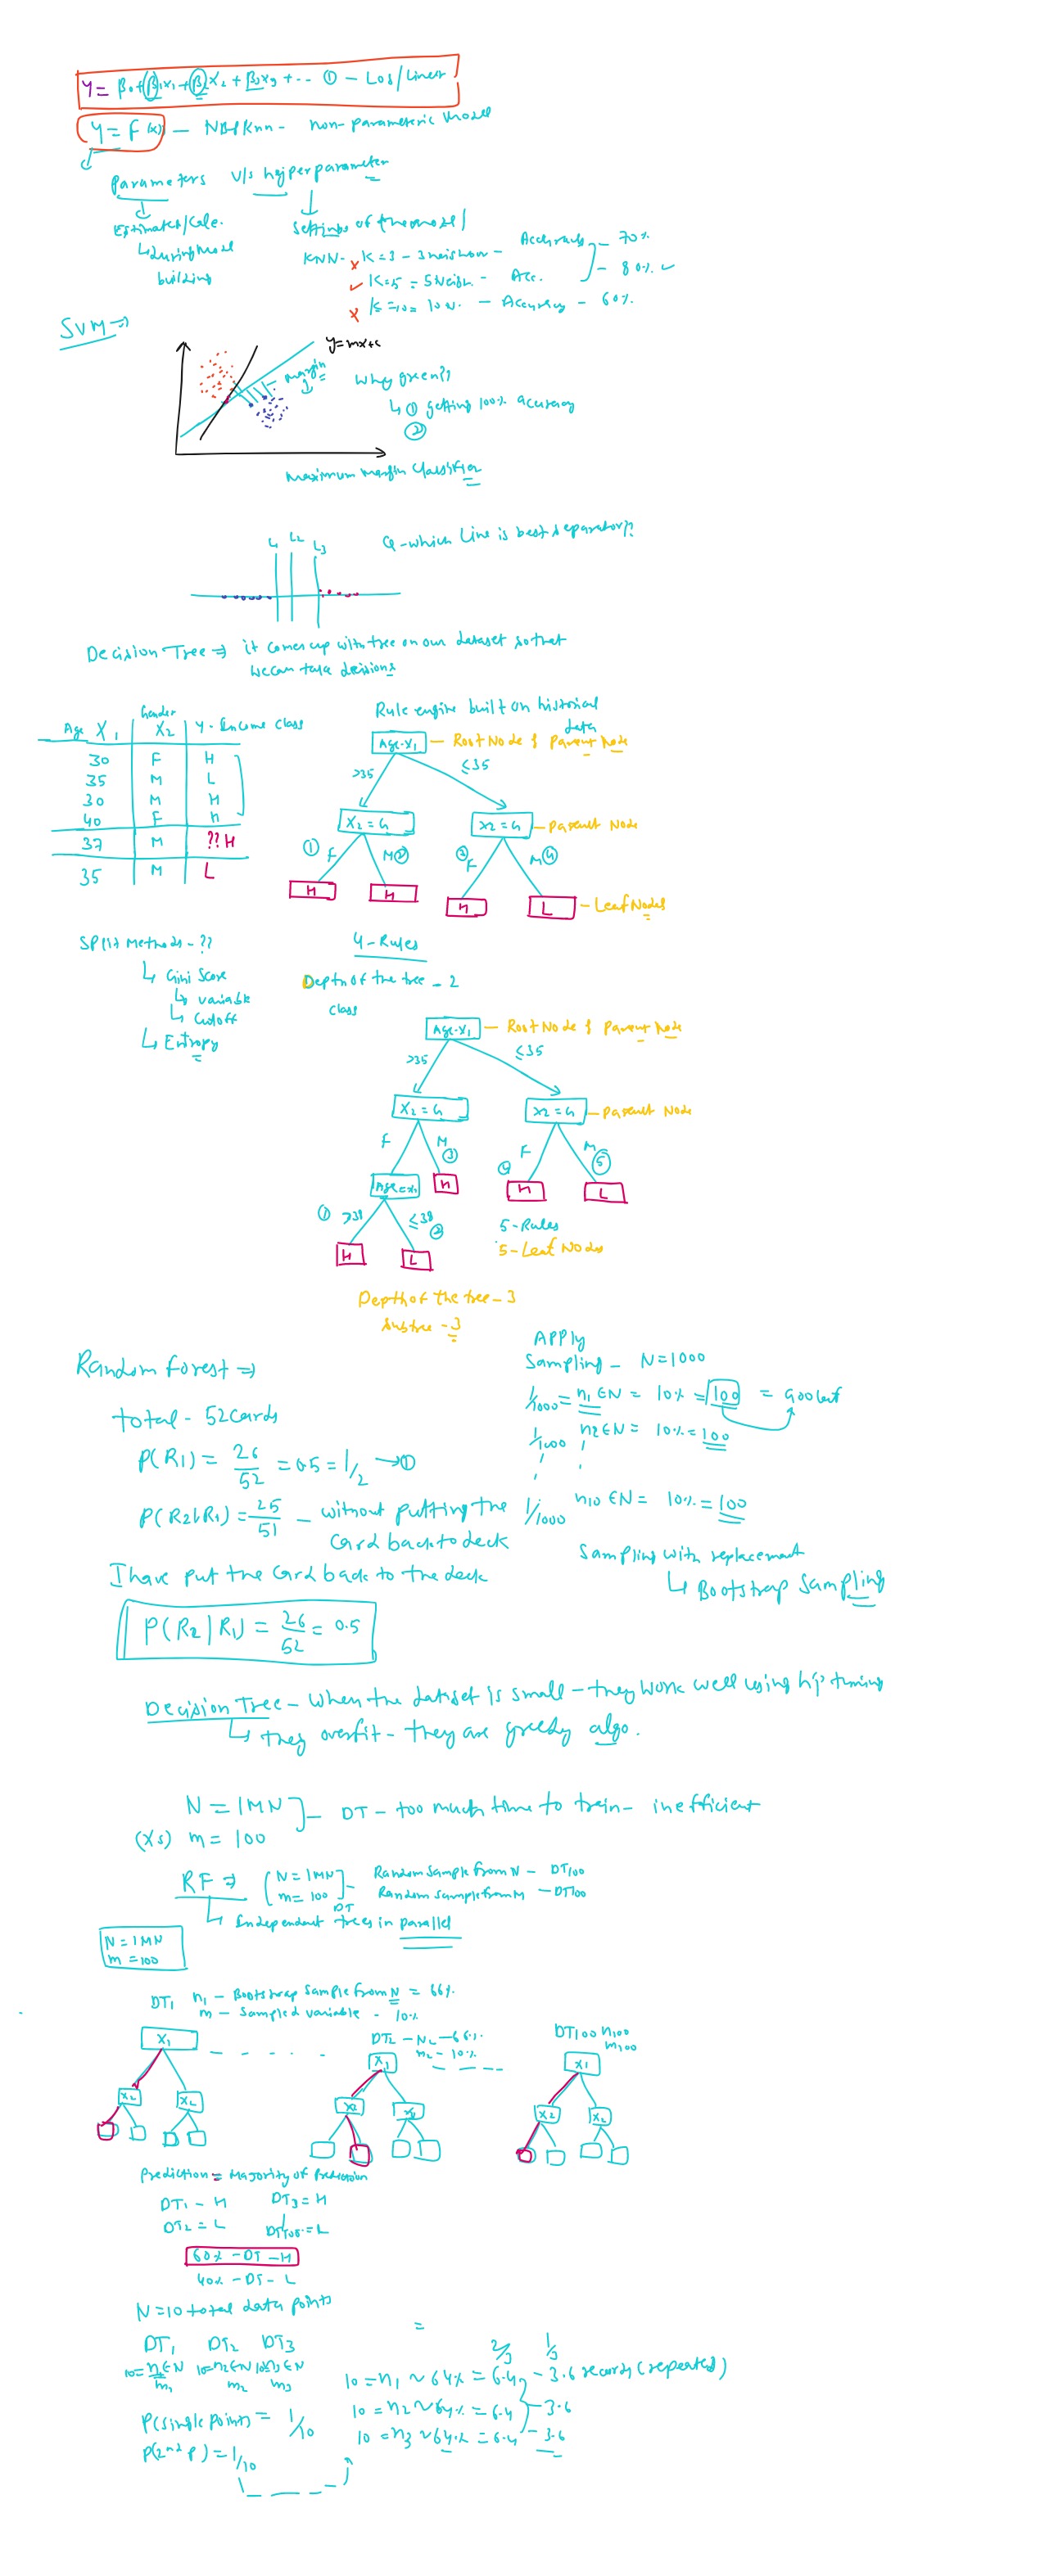 Y = β0+β1x1+β2x2+β3x3+-- ① - Log/Linear
Y = F(x) - NB/Knn - non-parameteric model
Parameters v/s hyperparameter
Estimates/Calc.
↳during model
building
Settings of the model
KNN- K=3 - 3 neighbour - Accuracy - 70%
K=5 = 5 Neigh. - Acc. - 80%
K=10= 10 N. - Accuracy - 60%
SVM⇒
y=mx+c
margin
Why green??
↳ ① getting 100% accuracy
②
Maximum margin classifier
L1 L2 L3
Q-which Line is best separator??
Decision Tree ⇒ it comes up with tree on our dataset so that
we can take decisions
Rule engine built on historical
data
Age X1 Gender X2 Y-Income class
30 F H
35 M L
30 M H
40 F H
37 M ??H
35 M L
Age-X1 - Root Node & Parent Node
>35 ≤35
X2=G X2=G - Parent Node
① F M② ③F M④
H H H L - Leaf Nodes
4-Rules
Depth of the tree - 2
class
Split Methods - ??
↳ Gini Score
↳ variable
↳ Cutoff
↳ Entropy
Age-X1 - Root Node & Parent Node
>35 ≤35
X2=G X2=G - Parent Node
F M③ ④F M⑤
Age=x1 H H L
① >38 ≤38 ②
H L
5-Rules
5-Leaf Nodes
Depth of the tree - 3
Subtree - 3
Random Forest ⇒
total - 52 cards
P(R1) = 26/52 = 0.5 = 1/2 →①
P(R2|R1) = 25/51 - without putting the
Card back to deck
I have put the card back to the deck
P(R2|R1) = 26/52 = 0.5
APPly
Sampling - N=1000
1/1000 = n1 ∈N = 10% = 100 = 900 left
1/1000 n2 ∈N = 10% = 100
1/1000 n10 ∈N = 10% = 100
Sampling with replacement
↳ Bootstrap Sampling
Decision Tree - When the dataset is small - they work well using hip tuning
↳ they overfit - they are greedy algo.
N = 1MN - DT - too much time to train - inefficient
(Xs) m = 100
RF ⇒ N=1MN Random Sample from N - DT100
m=100 Random sample from M - DT100
DT
↳ Independent trees in parallel
N=1MN
m=100
DT1 n1 - Bootstrap Sample from N = 66%
m - Sampled variable - 10%
DT2 - N2 - 66%
m2 - 10%
DT100 n100
m100
X1 X1 X1
X2 X2 X2 X2 X2 X2
Prediction = Majority of Prediction
DT1 - H DT3 = H
DT2 = L DT100 = L
60% - DT - H
40% - DT - L
N=10 total data points
DT1 DT2 DT3
10=n1∈N 10=n2∈N 10=n3∈N
m1 m2 m3
=
2/3 1/3
10 = n1 ~ 64% = 6.4 - 3.6 records (repeated)
10 = n2 ~ 64% = 6.4 - 3.6
10 = n3 ~ 64% = 6.4 - 3.6
P(single point) = 1/10
P(2nd P) = 1/10